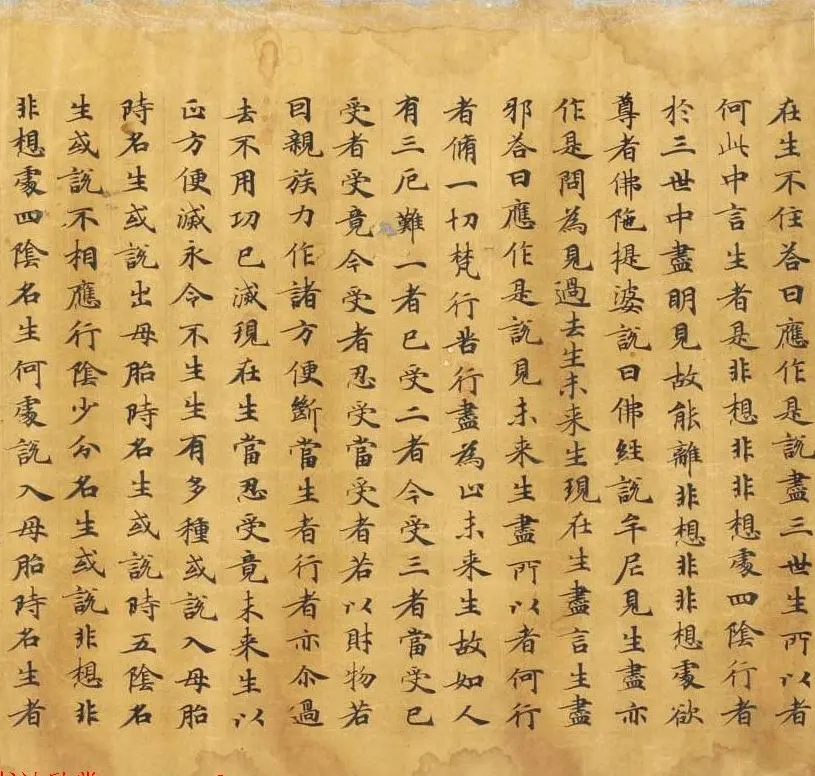 在生不住荅曰應作是說盡三世生所以者
何此中言生者是非想非非想處四陰行者
於三世中盡明見故能離非想非非想處欲
尊者佛陁提婆說曰佛經說牟尼見生盡亦
作是問為見過去生未来生現在生盡言生盡
邪荅曰應作是說見未来生盡所以者何行
者脩一切梵行苦行盡為止未来生故如人
有三厄難一者已受二者今受三者當受已
受者受竟今受者忍受當受者若以財物若
囙親族力作諸方便斷當生者行者亦尒過
去不用功已滅現在生當忍受竟未来生以
正方便滅永令不生生有多種或說入母胎
時名生或說出母胎時名生或說時五陰名
生或說不相應行陰少分名生或說非想非
非想處四陰名生何處說入母胎時名生者